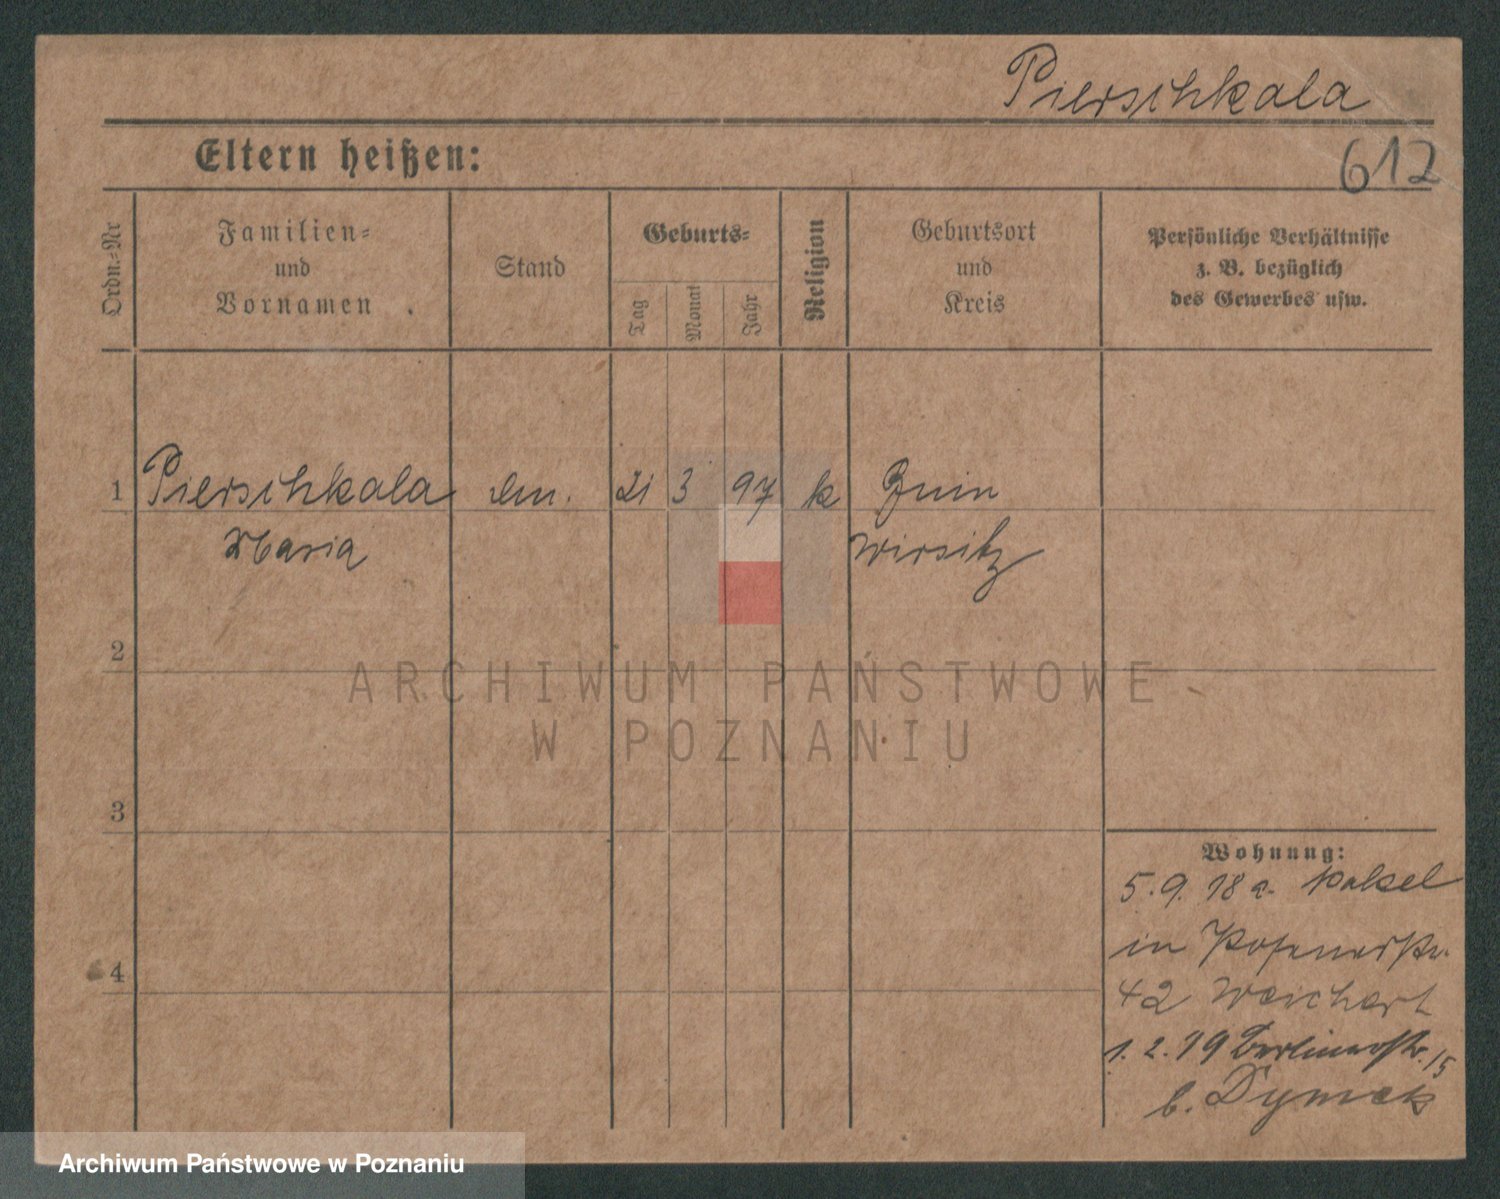 Pierschkala
Eltern heißen:
612
Ordn.-Nr
Familien-
und
Vornamen
Stand
Geburts-
Tag
Monat
Jahr
Religion
Geburtsort
und
Kreis
Persönliche Verhältnisse
z. B. bezüglich
des Gewerbes usw.
1 Pierschkala 21 3 97 k
Maria Wirsitz
2
3
4
Wohnung:
5.9.18 a.
in Posenerstr.
42 Weichert
1.2.19 Berlinerstr. 15
b. Dymek
ARCHIWUM PAŃSTWOWE
W POZNANIU
Archiwum Państwowe w Poznaniu